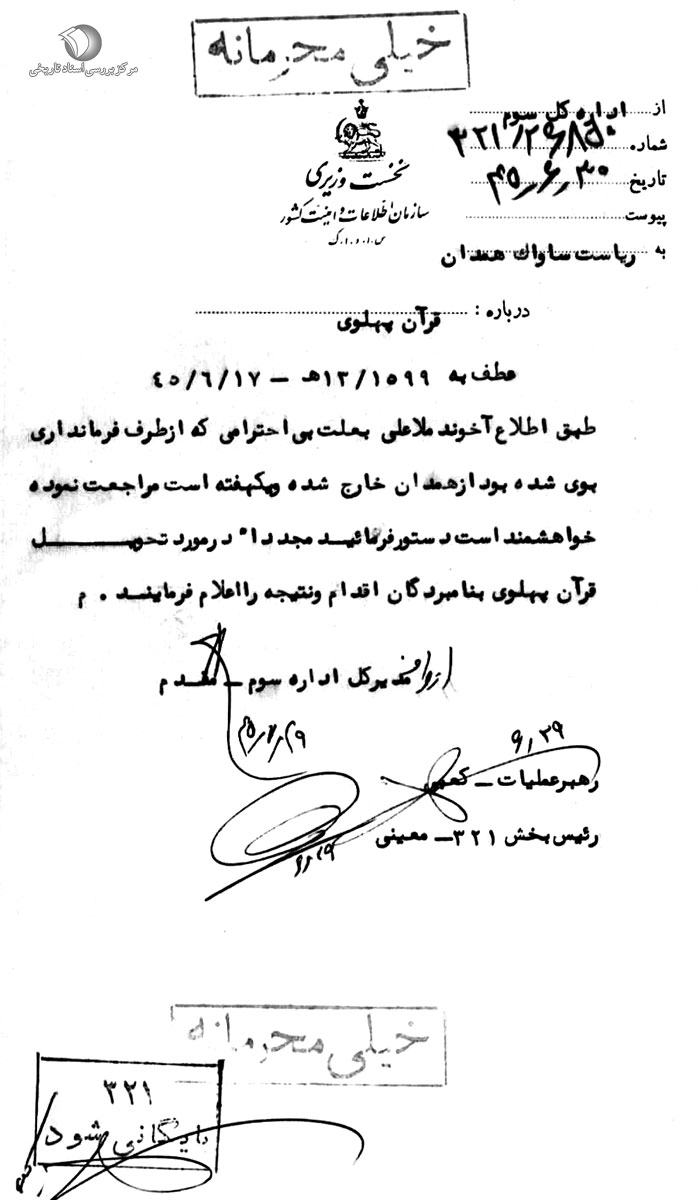 مرکز بررسی اسناد تاریخی
خیلی محرمانه
از اداره کل سوم
شماره
تاریخ ۴۵٫۶٫۳۰
پیوست
به ریاست ساواک همدان
نخست وزیری
سازمان اطلاعات و امنیت کشور
س.ا.و.ا.ک
درباره : قرآن پهلوی
عطف به ۱۲/۱۵۹۹هـ – ۴۵/۶/۱۷
طبق اطلاع آخوند ملاعلی بعلت بی احترامی که ازطرف فرمانداری
بوی شده بود ازهمدان خارج شده ویکهفته است مراجعت نموده
خواهشمند است دستورفرمائید مجددا" درمورد تحویل
قرآن پهلوی بنامبردگان اقدام ونتیجه رااعلام فرمایند . م
مدیرکل اداره سوم – مقدم
۶٫۲۹
رهبرعملیات –
رئیس بخش ۳۲۱– معینی
خیلی محرمانه
۳۲۱
بایگانی شود